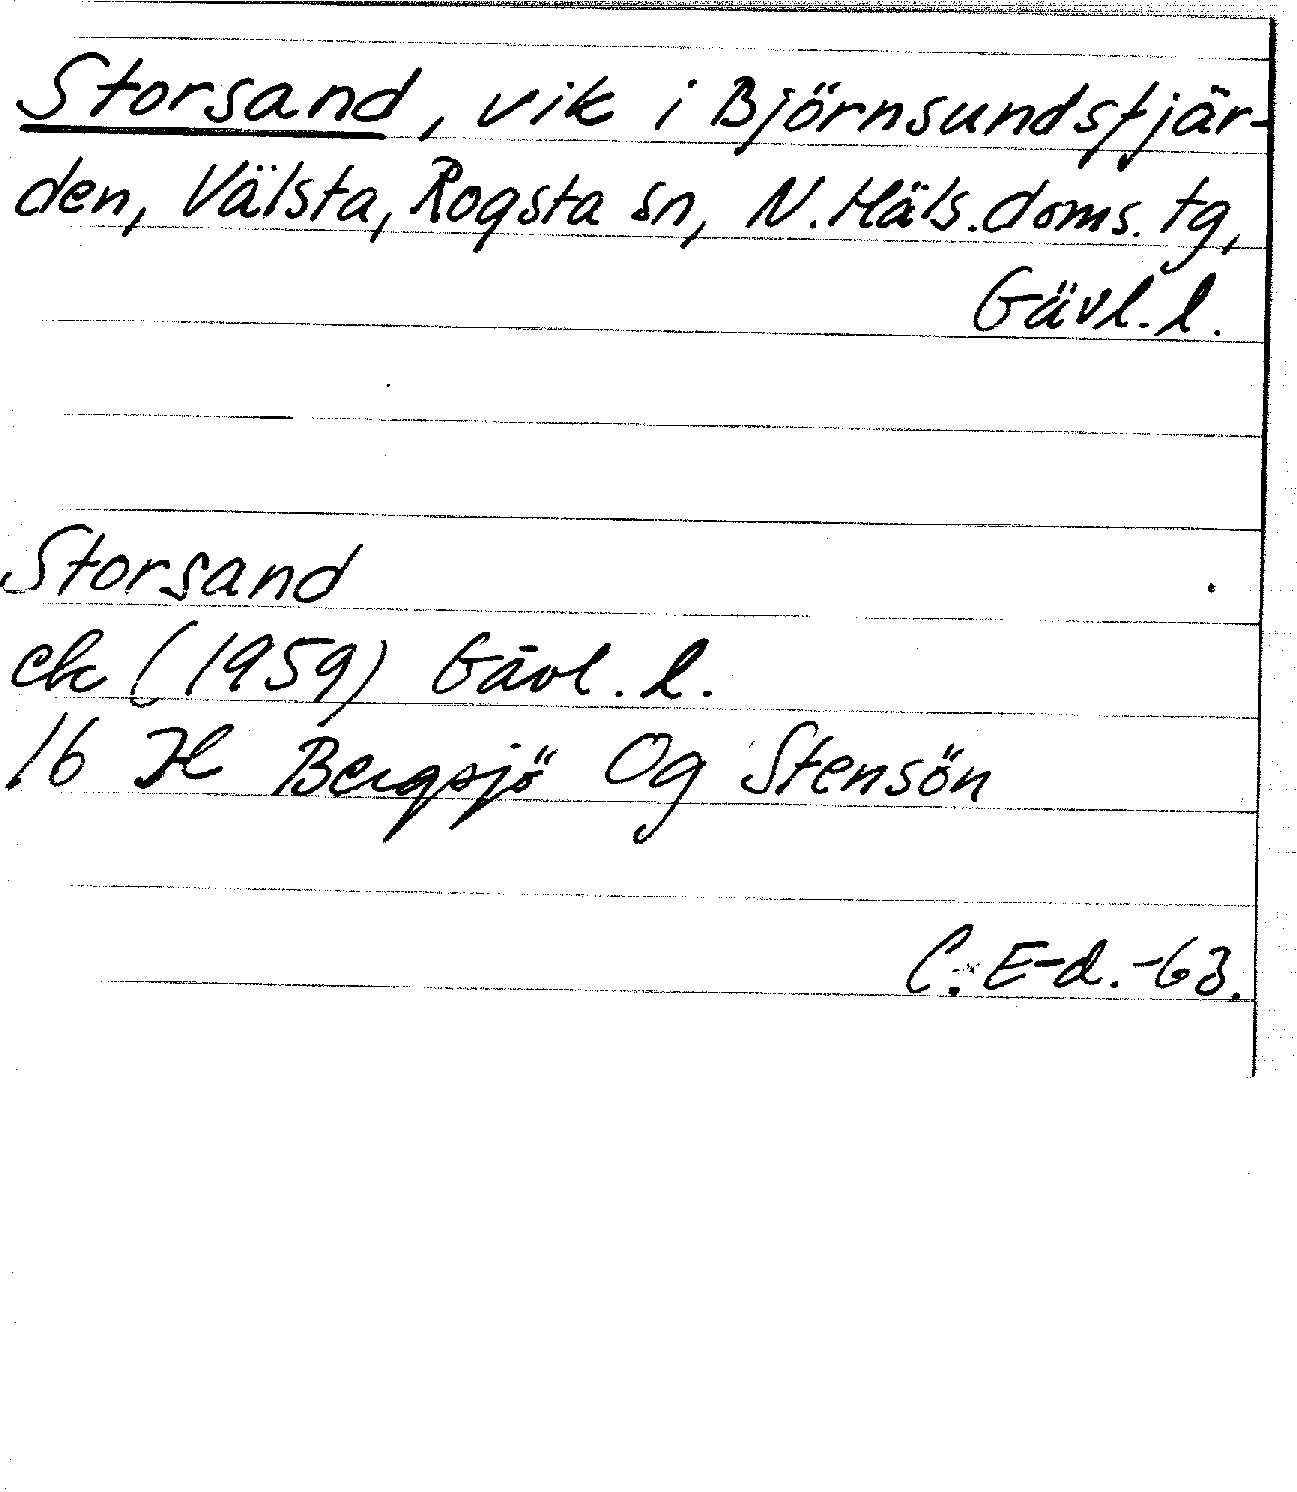 Storsand, vik i Björnsundsfjär-
den, Välsta, Rogsta sn, N. Häls. doms. tg,
Gävl. l.
Storsand
ek (1959) Gävl. l.
16 H Bergsjö Og Stensön
C. E-d. -63.